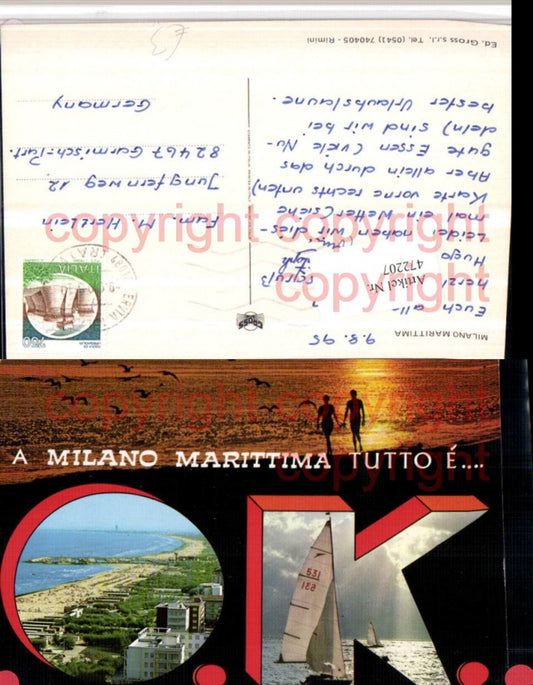 MILANO MARITTIMA
9.8.95
Euch all-
herzl.
Hugo
Leider haben wir dies-
mal ein Wetter (siehe
Karte vorne rechts unten)
Aber allein durch das
gute Essen (viele Nu-
deln) sind wir bei
bester Urlaubslaune.
Ed. Gross s.r.l. Tel. (0541) 740405 - Rimini
GROSS
ITALIA
750
Fam. M. Herrlein
Jungfernweg 12,
82467 Garmisch-Part.
Germany
Artikel Nr.
472207
copyright copyright
copyright
copyright copyright
copyright
A MILANO MARITTIMA TUTTO É....
O.K.
531